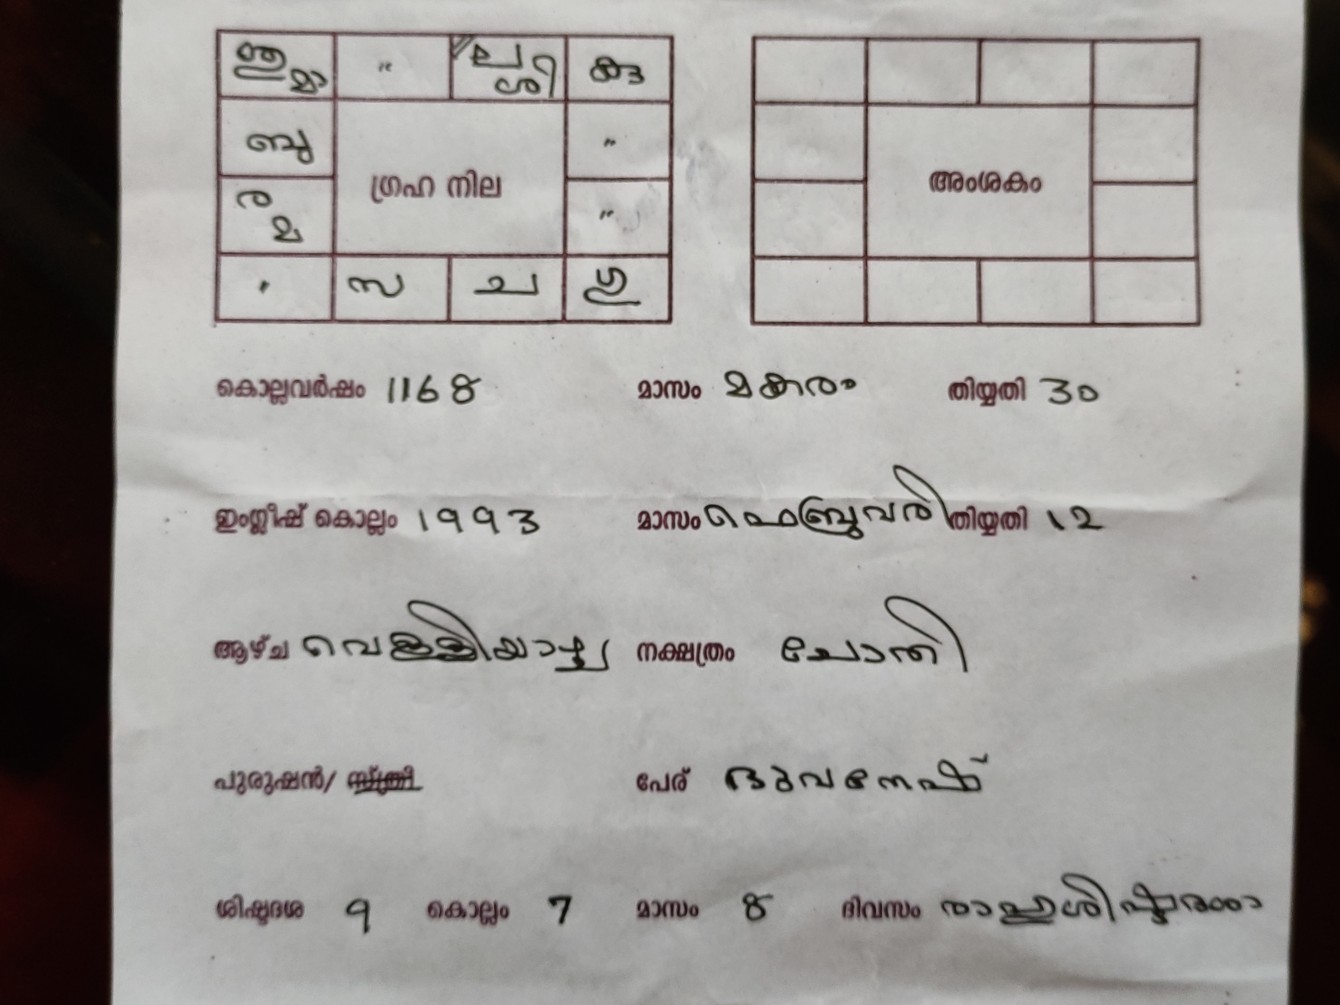 " ല ശി കു
ബു "
ഗ്രഹ നില അംശകം
ര മ "
സ ച ഗു
കൊല്ലവർഷം 1168 മാസം മകരം തിയ്യതി 30
ഇംഗ്ലീഷ് കൊല്ലം 1993 മാസം ഫെബ്രുവരി തിയ്യതി 12
ആഴ്ച വെള്ളിയാഴ്ച നക്ഷത്രം ചോതി
പുരുഷൻ/ സ്ത്രീ പേര് ഭുവനേഷ്
ശിഷ്ടദശ 9 കൊല്ലം 7 മാസം 8 ദിവസം